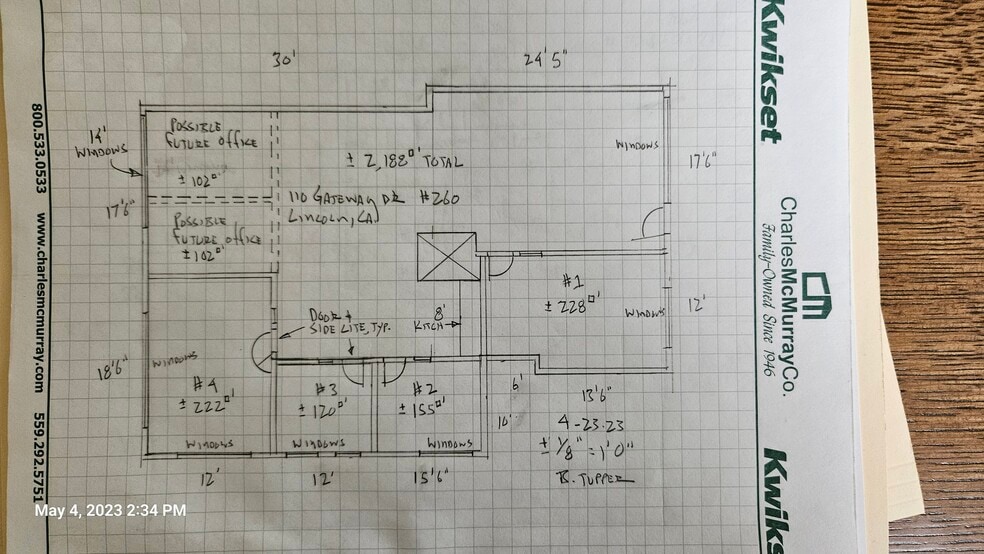 30'
24'5"
14'
WINDOWS
POSSIBLE
FUTURE OFFICE
± 102□'
± 2,188□' TOTAL
110 GATEWAY DR #260
LINCOLN, CA
WINDOWS
17'6"
17'6"
POSSIBLE
FUTURE OFFICE
± 102□'
#1
± 228□'
WINDOWS
12'
DOOR +
SIDE LITE, TYP.
8'
KITCH
WINDOWS
18'6"
#4
± 222□'
#3
± 120□'
#2
± 155□'
6'
10'
13'6"
WINDOWS
WINDOWS
WINDOWS
12'
12'
15'6"
4-23-23
± 1/8" = 1'0"
B. TUPPER
800.533.0533 www.charlesmcmurray.com 559.292.5751
Kwikset
CM
CharlesMcMurrayCo.
Family-Owned Since 1946
Kwikse
May 4, 2023 2:34 PM